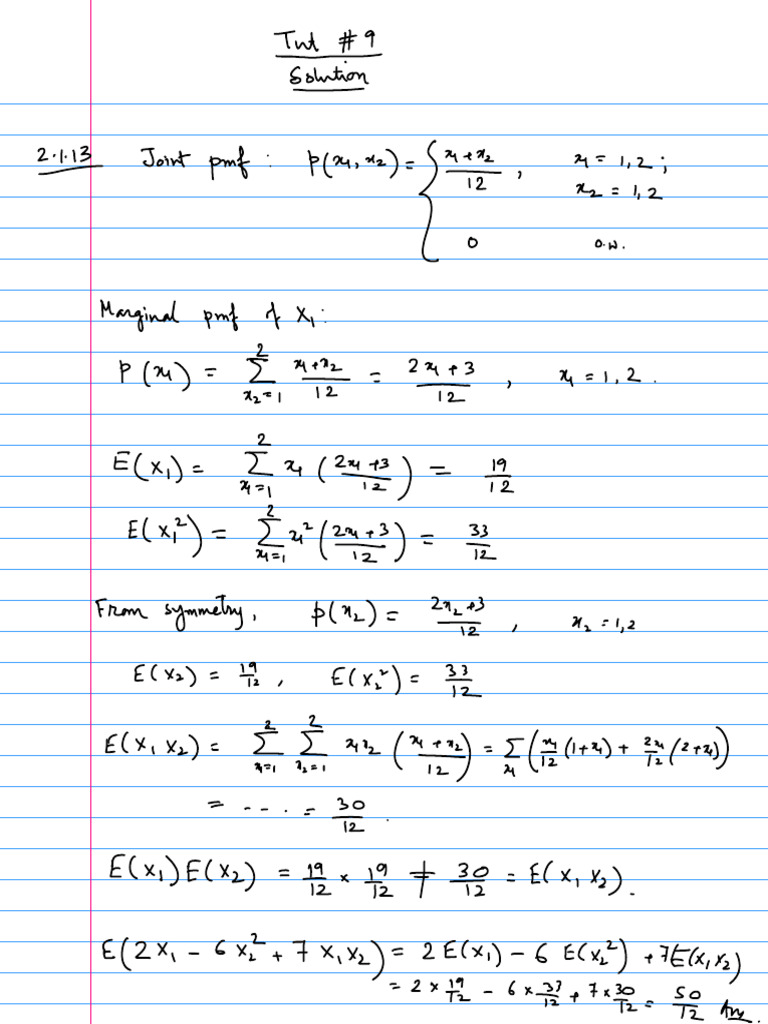 Tut # 9
Solution
2.1.13 Joint pmf : p(x₁, x₂) = { (x₁ + x₂)/12 , x₁ = 1, 2 ; x₂ = 1, 2
0 o.w.
Marginal pmf of X₁ :
p(x₁) = ∑_{x₂=1}^{2} (x₁ + x₂)/12 = (2x₁ + 3)/12 , x₁ = 1, 2 .
E(X₁) = ∑_{x₁=1}^{2} x₁ ((2x₁ + 3)/12) = 19/12
E(X₁²) = ∑_{x₁=1}^{2} x₁² ((2x₁ + 3)/12) = 33/12
From symmetry, p(x₂) = (2x₂ + 3)/12 , x₂ = 1, 2
E(X₂) = 19/12 , E(X₂²) = 33/12
E(X₁ X₂) = ∑_{x₁=1}^{2} ∑_{x₂=1}^{2} x₁x₂ ((x₁ + x₂)/12) = ∑_{x₁} (x₁/12 (1+x₁) + 2x₁/12 (2+x₁))
= - - . . = 30/12 .
E(X₁) E(X₂) = 19/12 × 19/12 ≠ 30/12 = E(X₁ X₂) .
E(2X₁ - 6X₂² + 7X₁X₂) = 2E(X₁) - 6 E(X₂²) + 7E(X₁X₂)
= 2 × 19/12 - 6 × 33/12 + 7 × 30/12 = 50/12 Ans.